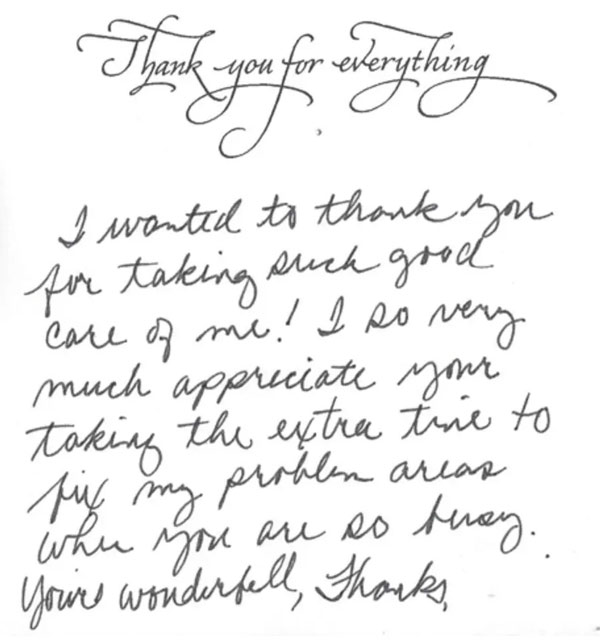 Thank you for everything
I wanted to thank you
for taking such good
care of me! I so very
much appreciate your
taking the extra time to
fix my problem areas
when you are so busy.
Yours wonderfull, Thanks,